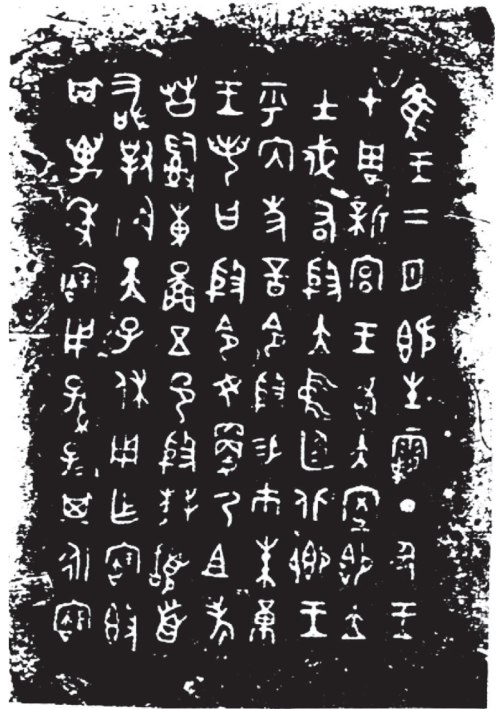 隹王二月既生霸丁丑王
才周新宫王各大室即立
士戍右殷立中廷北鄉王
乎内史音令殷易巿朱黄
王若曰殷令女更乃且考
友𤔲東啚五邑殷拜𩒨首
敢對揚天子休用乍寶𣪘
其萬年寶用孫孫子子其永寶